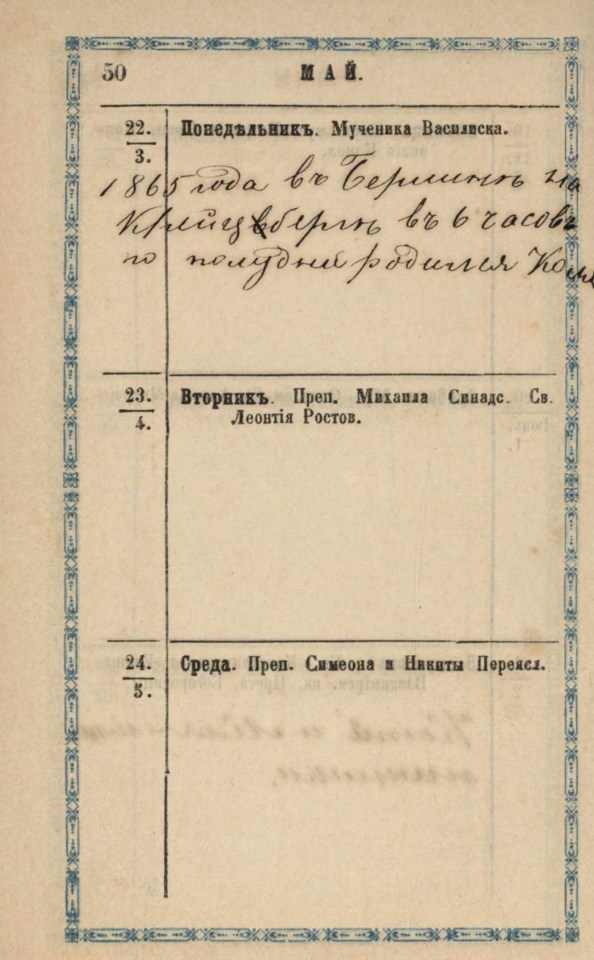 50 МАЙ.
22. Понедѣльникъ. Мученика Василиска.
3.
1865 года въ Берлинѣ на
Крейцбергѣ въ 6 часовъ
по полудни родился Коля
23. Вторникъ. Преп. Михаила Синадс. Св.
4. Леонтія Ростов.
24. Среда. Преп. Симеона и Никиты Переясл.
5.